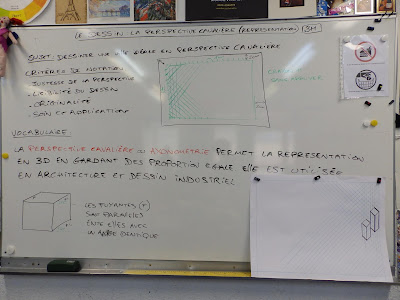 LE DESSIN LA PERSPECTIVE CAVALIÈRE (REPRESENTATION) (3H)
SUJET: DESSINER UNE VILLE IDÉALE EN PERSPECTIVE CAVALIÈRE
CRITÈRES DE NOTATION
- JUSTESSE DE LA PERSPECTIVE
- LISIBILITÉ DU DESSIN
- ORIGINALITÉ
- SOIN ET APPLICATION
VOCABULAIRE
LA PERSPECTIVE CAVALIÈRE OU AXONOMETRIE PERMET LA REPRESENTATION
EN 3D EN GARDANT DES PROPORTION EGALE ELLE EST UTILISÉE
EN ARCHITECTURE ET DESSIN INDUSTRIEL
LES FUYANTES (F)
SONT PARALLÈLES
ENTE ELLES AVEC
UN ANGLE IDENTIQUE